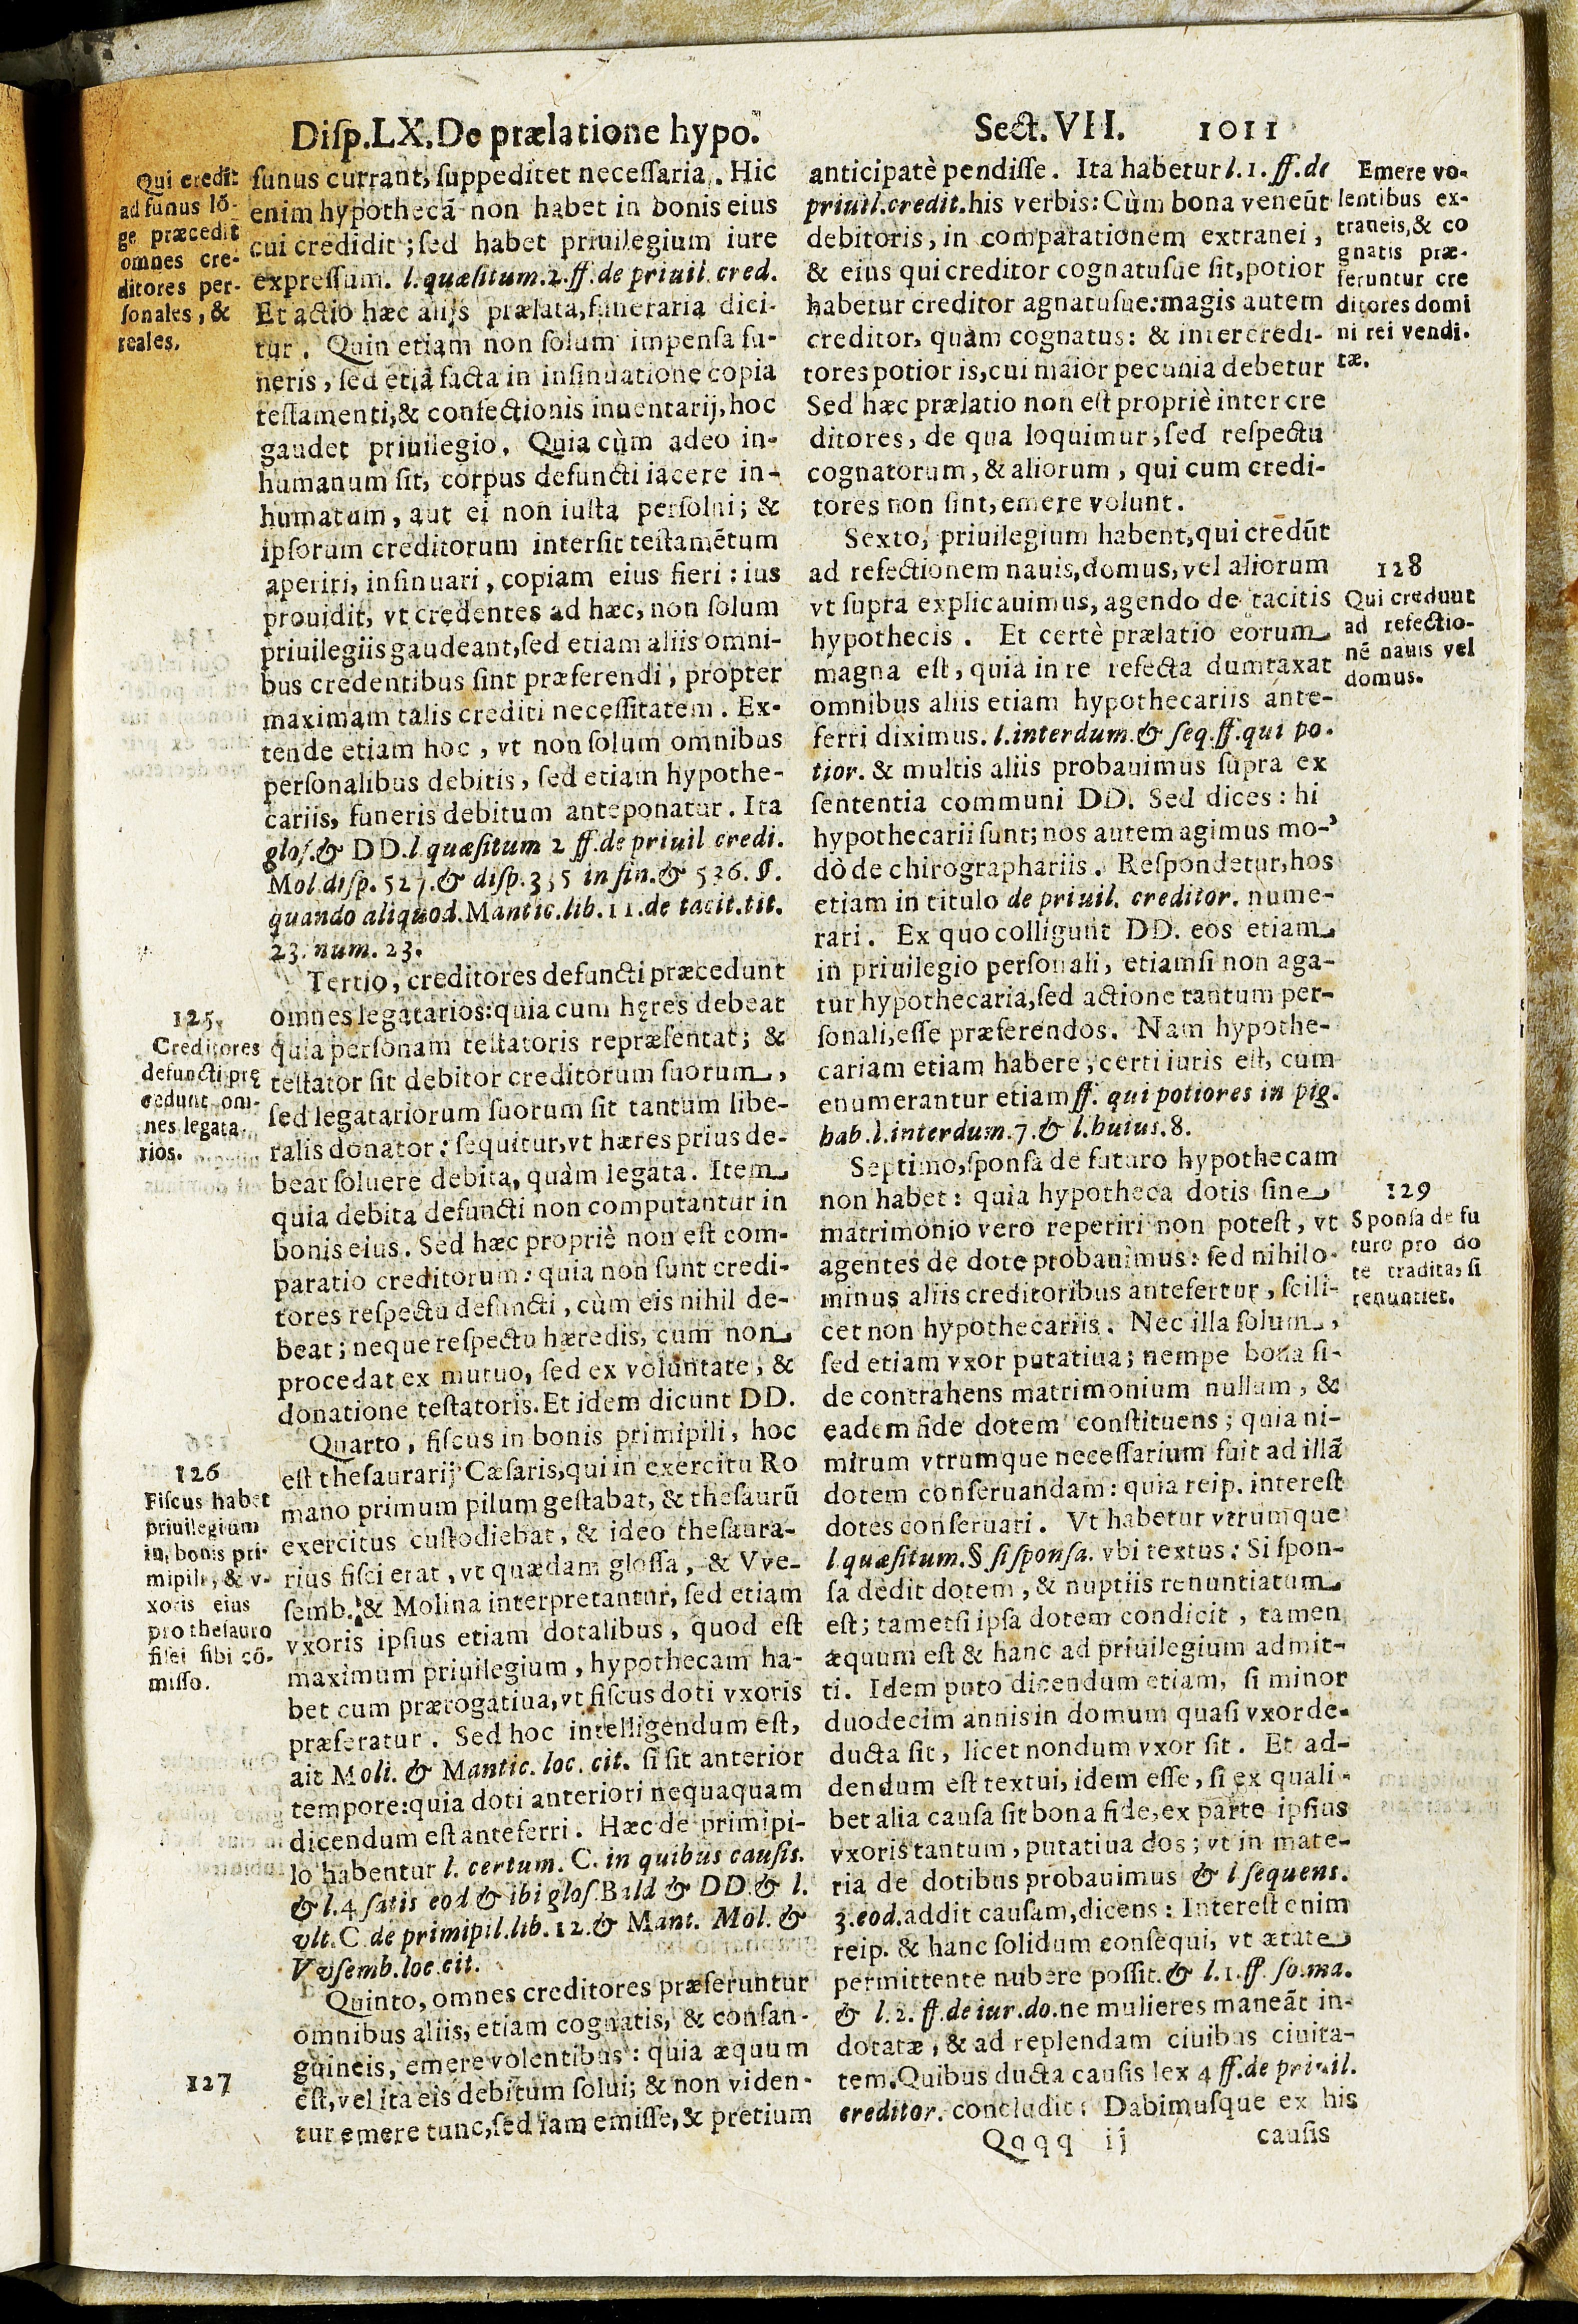 Diſp.LX.De prælatione hypo. Sect.VII. 1011
Qui credit
ad funus lõ-
ge præcedit
omnes cre-
ditores per-
ſonales, &
reales.
funus currant, ſuppeditet neceſſaria. Hic
enim hypothecã non habet in bonis eius
cui credidit; ſed habet priuilegium iure
expreſſum. l.quæſitum.2.ff.de priuil.cred.
Et actio hæc aliis prælata, funeraria dici-
tur. Quin etiam non ſolum impenſa fu-
neris, ſed etiã facta in inſinuatione copia
teſtamenti,& confectionis inuentarij, hoc
gaudet priuilegio. Quia cùm adeo in-
humanum ſit, corpus defuncti iacere in-
humatum, aut ei non iuſta perſolui; &
ipſorum creditorum interſit teſtamẽtum
aperiri, inſinuari, copiam eius fieri: ius
prouidit, vt credentes ad hæc, non ſolum
priuilegiis gaudeant, ſed etiam aliis omni-
bus credentibus ſint præferendi, propter
maximam talis crediti neceſſitatem. Ex-
tende etiam hoc, vt non ſolum omnibus
perſonalibus debitis, ſed etiam hypothe-
cariis, funeris debitum anteponatur. Ita
gloſ.& DD.l.quæſitum 2 ff.de priuil credi.
Mol.diſp. 527.& diſp.335 in fin.& 536. §.
quando aliquod.Mantic.lib.11.de tacit.tit.
23.num.23.
125.
Creditores
defuncti prę
cedunt om-
nes legata-
rios.
Tertio, creditores defuncti præcedunt
omnes legatarios: quia cum hęres debeat
quia perſonam teſtatoris repræſentat; &
teſtator ſit debitor creditorum ſuorum,
ſed legatariorum ſuorum ſit tantum libe-
ralis donator: ſequitur, vt hæres prius de-
beat ſoluere debita, quàm legata. Item
quia debita defuncti non computantur in
bonis eius. Sed hæc propriè non eſt com-
paratio creditorum: quia non ſunt credi-
tores reſpectu defuncti, cùm eis nihil de-
beat; neque reſpectu hæredis, cum non
procedat ex mutuo, ſed ex voluntate, &
donatione teſtatoris. Et idem dicunt DD.
126
Fiſcus habet
priuilegium
in bonis pri-
mipili, & v-
xoris eius
pro theſauro
fiſci ſibi cõ-
miſſo.
Quarto, fiſcus in bonis primipili, hoc
eſt theſaurarij Cæſaris, qui in exercitu Ro
mano primum pilum geſtabat, & theſaurũ
exercitus cuſtodiebat, & ideo theſaura-
rius fiſci erat, vt quædam gloſſa, & Vve-
ſemb. & Molina interpretantur, ſed etiam
vxoris ipſius etiam dotalibus, quod eſt
maximum priuilegium, hypothecam ha-
bet cum prærogatiua, vt fiſcus doti vxoris
præferatur. Sed hoc intelligendum eſt,
ait Moli. & Mantic. loc. cit. ſi ſit anterior
tempore: quia doti anteriori nequaquam
dicendum eſt anteferri. Hæc de primipi-
lo habentur l. certum. C. in quibus cauſis.
& l.4 ſatis eod & ibi gloſ.Bald & DD.& l.
vlt.C de primipil.lib.12.& Mant. Mol. &
Vvſemb.loc.cit.
127
Quinto, omnes creditores præferuntur
omnibus aliis, etiam cognatis, & conſan-
guineis, emere volentibus: quia æquum
eſt, vel ita eis debitum ſolui; & non viden-
tur emere tunc, ſed iam emiſſe, & pretium
anticipatè pendiſſe. Ita habetur l.1.ff.de
priuil.credit.his verbis: Cùm bona veneũt
debitoris, in comparationem extranei,
& eius qui creditor cognatuſue ſit, potior
habetur creditor agnatuſue: magis autem
creditor, quàm cognatus: & inter credi-
tores potior is, cui maior pecunia debetur
Sed hæc prælatio non eſt propriè inter cre
ditores, de qua loquimur; ſed reſpectu
cognatorum, & aliorum, qui cum credi-
tores non ſint, emere volunt.
Emere vo-
lentibus ex-
traneis, & co
gnatis præ-
feruntur cre
ditores domi
ni rei vendi-
tæ.
Sexto, priuilegium habent, qui credũt
ad refectionem nauis, domus, vel aliorum
vt ſupra explicauimus, agendo de tacitis
hypothecis. Et certè prælatio eorum
magna eſt, quia in re refecta dumtaxat
omnibus aliis etiam hypothecariis ante-
ferri diximus. l.interdum.& ſeq.ff.qui po-
tior. & multis aliis probauimus ſupra ex
ſententia communi DD. Sed dices: hi
hypothecarii ſunt; nos autem agimus mo-
dò de chirographariis. Reſpondetur, hos
etiam in titulo de priuil. creditor. nume-
rari. Ex quo colligunt DD. eos etiam
in priuilegio perſonali, etiamſi non aga-
tur hypothecaria, ſed actione tantum per-
ſonali, eſſe præferendos. Nam hypothe-
cariam etiam habere, certi iuris eſt, cum
enumerantur etiam ff. qui potiores in pig.
hab.l.interdum.7.& l.huius.8.
128
Qui credunt
ad refectio-
nẽ nauis vel
domus.
Septimo, ſponſa de futuro hypothecam
non habet: quia hypotheca dotis ſine
matrimonio vero reperiri non poteſt, vt
agentes de dote probauimus: ſed nihilo-
minus aliis creditoribus antefertur, ſcili-
cet non hypothecariis. Nec illa ſolum,
ſed etiam vxor putatiua; nempe bona fi-
de contrahens matrimonium nullum, &
eadem fide dotem conſtituens; quia ni-
mirum vtrumque neceſſarium fuit ad illã
dotem conſeruandam: quia reip. intereſt
dotes conſeruari. Vt habetur vtrumque
l.quæſitum.§ ſi ſponſa. vbi textus: Si ſpon-
ſa dedit dotem, & nuptiis renuntiatum
eſt; tametſi ipſa dotem condicit, tamen
æquum eſt & hanc ad priuilegium admit-
ti. Idem puto dicendum etiam, ſi minor
duodecim annis in domum quaſi vxor de-
ducta ſit, licet nondum vxor ſit. Et ad-
dendum eſt textui, idem eſſe, ſi ex quali-
bet alia cauſa ſit bona fide, ex parte ipſius
vxoris tantum, putatiua dos; vt in mate-
ria de dotibus probauimus & l ſequens.
3.eod.addit cauſam, dicens: Intereſt enim
reip. & hanc ſolidum conſequi, vt ætate
permittente nubere poſſit. & l.1.ff. ſo.ma.
& l.2. ff.de iur.do.ne mulieres maneãt in-
dotatæ, & ad replendam ciuibus ciuita-
tem. Quibus ducta cauſis lex 4 ff.de priuil.
creditor. concludit: Dabimuſque ex his
129
Sponſa de fu
turo pro do
te tradita, ſi
renuntiet.
Qqqq ij cauſis